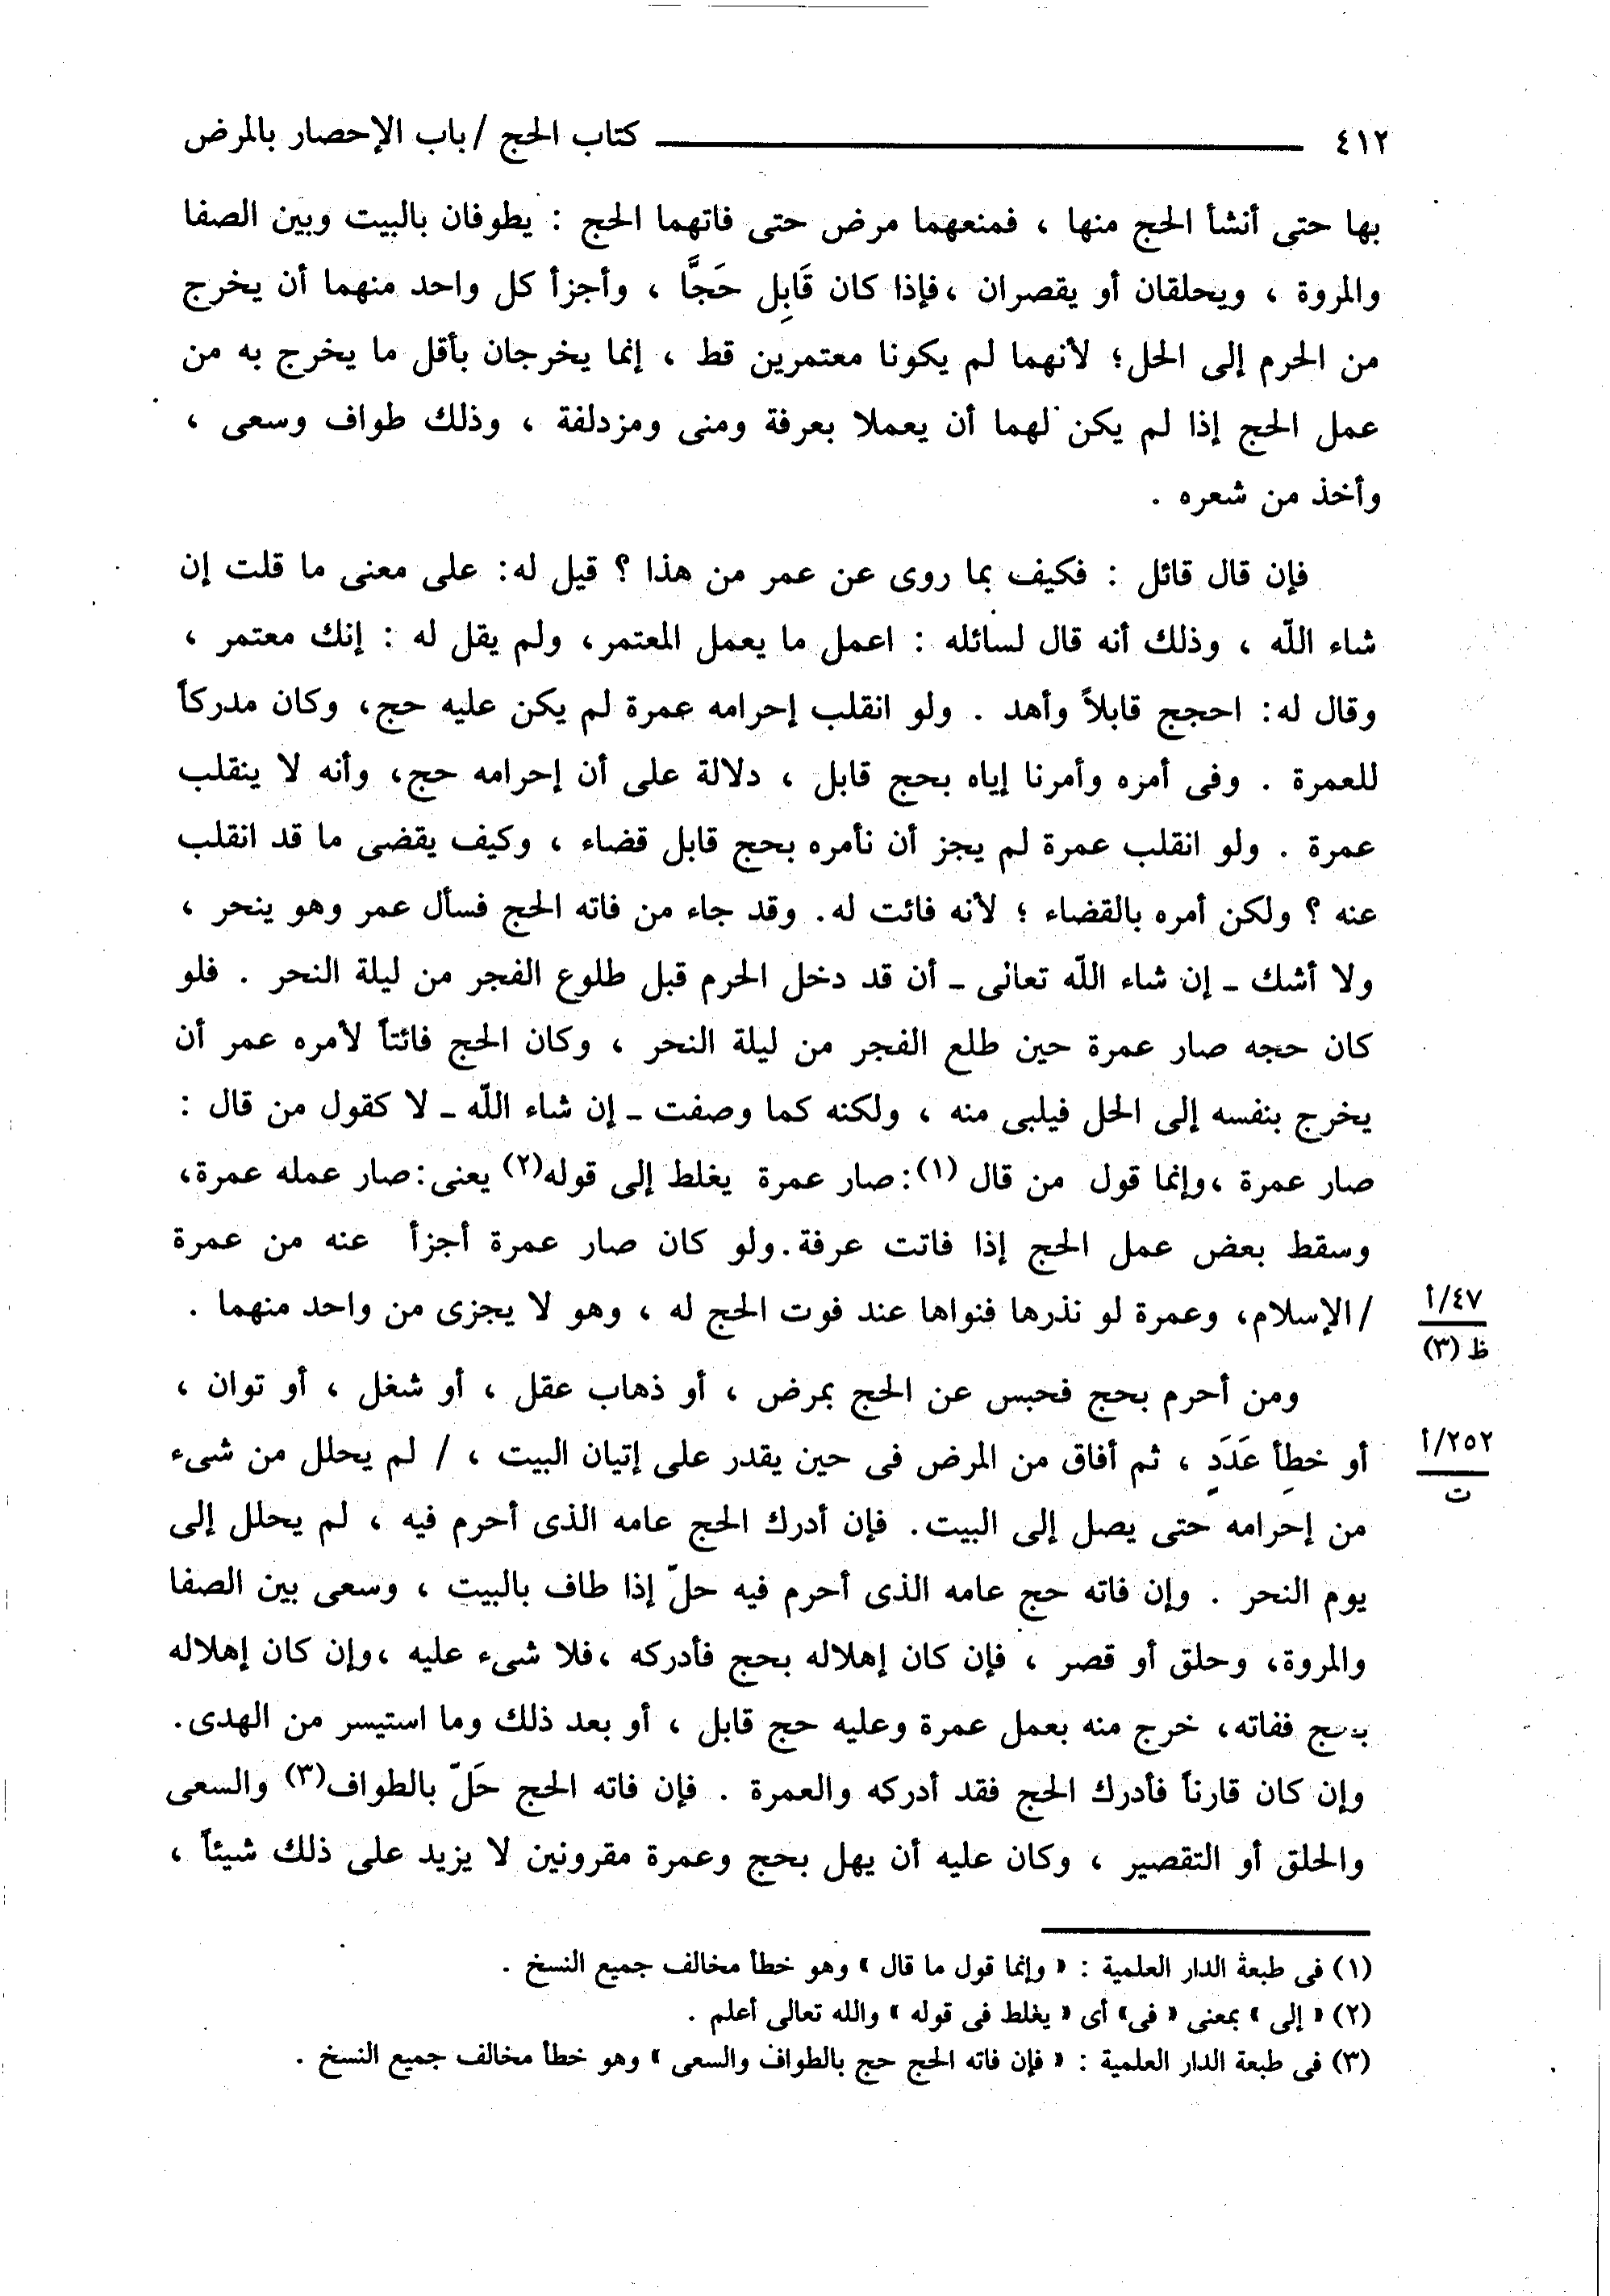 ٤١٢ كتاب الحج / باب الإحصار بالمرض
بها حتى أنشأ الحج منها ، فمنعهما مرض حتى فاتهما الحج : يطوفان بالبيت وبين الصفا
والمروة ، ويحلقان أو يقصران ،فإذا كان قَابِل حَجَّا ، وأجزأ كل واحد منهما أن يخرج
من الحرم إلى الحل؛ لأنهما لم يكونا معتمرين قط ، إنما يخرجان بأقل ما يخرج به من
عمل الحج إذا لم يكن لهما أن يعملا بعرفة ومنى ومزدلفة ، وذلك طواف وسعى ،
وأخذ من شعره .
فإن قال قائل : فكيف بما روى عن عمر من هذا ؟ قيل له: على معنى ما قلت إن
شاء اللّه ، وذلك أنه قال لسائله : اعمل ما يعمل المعتمر، ولم يقل له : إنك معتمر ،
وقال له: احجج قابلاً وأهد . ولو انقلب إحرامه عمرة لم يكن عليه حج، وكان مدركاً
للعمرة . وفى أمره وأمرنا إياه بحج قابل ، دلالة على أن إحرامه حج، وأنه لا ينقلب
عمرة . ولو انقلب عمرة لم يجز أن نأمره بحج قابل قضاء ، وكيف يقضى ما قد انقلب
عنه ؟ ولكن أمره بالقضاء ؛ لأنه فائت له. وقد جاء من فاته الحج فسأل عمر وهو ينحر ،
ولا أشك ـ إن شاء اللّه تعالى ـ أن قد دخل الحرم قبل طلوع الفجر من ليلة النحر . فلو
كان حجه صار عمرة حين طلع الفجر من ليلة النحر ، وكان الحج فائتاً لأمره عمر أن
يخرج بنفسه إلى الحل فيلبى منه ، ولكنه كما وصفت ـ إن شاء اللّه ـ لا كقول من قال :
صار عمرة ،وإنما قول من قال (١): صار عمرة يغلط إلى قوله(٢) يعنى: صار عمله عمرة،
وسقط بعض عمل الحج إذا فاتت عرفة.ولو كان صار عمرة أجزأ عنه من عمرة
/الإسلام، وعمرة لو نذرها فنواها عند فوت الحج له ، وهو لا يجزى من واحد منهما .
٤٧/أ
ظ (٣)
ومن أحرم بحج فحبس عن الحج بمرض ، أو ذهاب عقل ، أو شغل ، أو توان ،
أو خطِأ عَدَدٍ ، ثم أفاق من المرض فى حين يقدر على إتيان البيت ، / لم يحلل من شىء
٢٥٢/أ
ت
من إحرامه حتى يصل إلى البيت. فإن أدرك الحج عامه الذى أحرم فيه ، لم يحلل إلى
يوم النحر . وإن فاته حج عامه الذى أحرم فيه حلّ إذا طاف بالبيت ، وسعى بين الصفا
والمروة، وحلق أو قصر ، فإن كان إهلاله بحج فأدركه ،فلا شىء عليه ،وإن كان إهلاله
بحج ففاته، خرج منه بعمل عمرة وعليه حج قابل ، أو بعد ذلك وما استيسر من الهدى.
وإن كان قارناً فأدرك الحج فقد أدركه والعمرة . فإن فاته الحج حَلّ بالطواف(٣) والسعى
والحلق أو التقصير ، وكان عليه أن يهل بحج وعمرة مقرونين لا يزيد على ذلك شيئاً ،
(١) فى طبعة الدار العلمية : « وإنما قول ما قال » وهو خطأ مخالف جميع النسخ .
(٢) « إلى » بمعنى « فى» أى « يغلط فى قوله » والله تعالى أعلم .
(٣) فى طبعة الدار العلمية : « فإن فاته الحج حج بالطواف والسعى » وهو خطأ مخالف جميع النسخ .